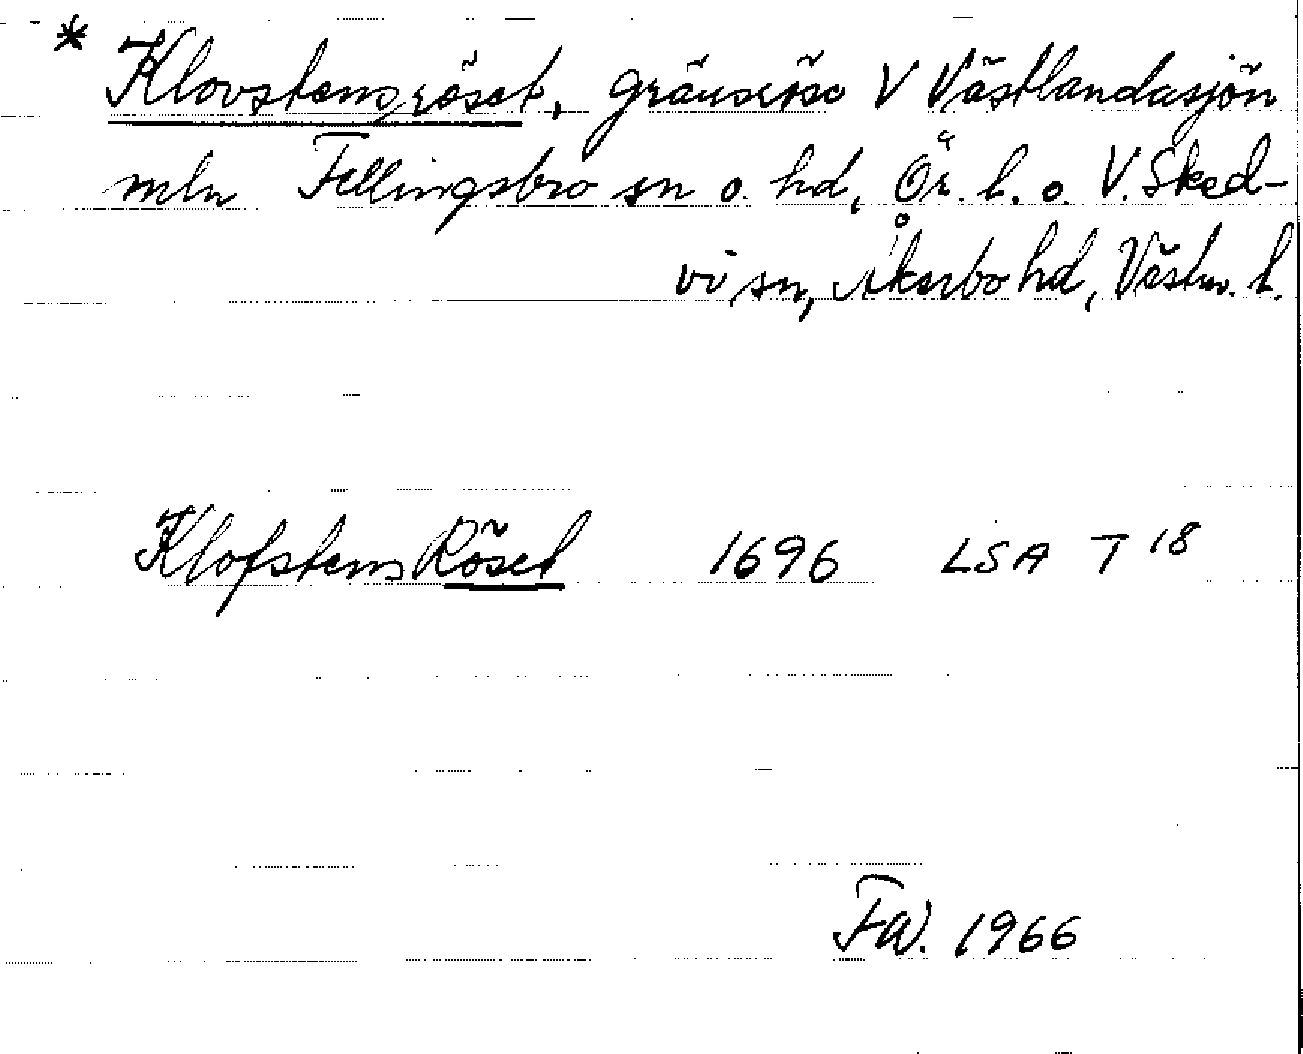 * Klovstensröset, gränsröse V Västlandasjön
mln Fellingsbro sn o. hd, Ör. l. o. V. Sked-
vi sn, Åkerbo hd, Västm. l.
Klofstens Röset 1696 LSA T 18
FW. 1966